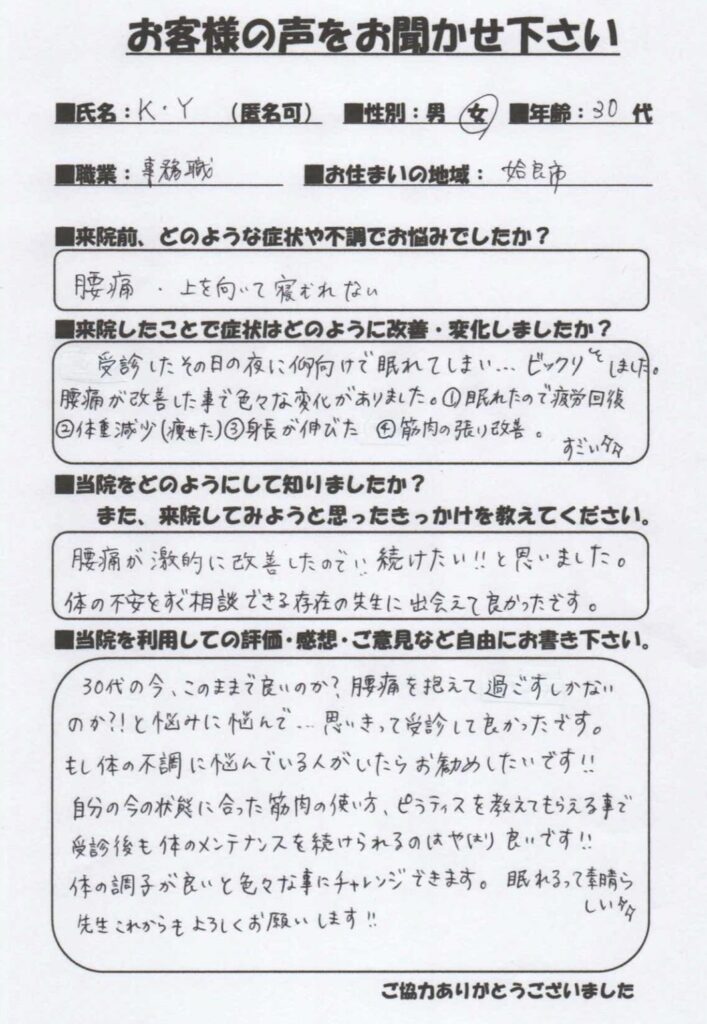 お客様の声をお聞かせ下さい
■氏名：K・Y （匿名可） ■性別：男 女 ■年齢：30 代
■職業：事務職 ■お住まいの地域：姶良市
■来院前、どのような症状や不調でお悩みでしたか？
腰痛 ・上を向いて寝むれない
■来院したことで症状はどのように改善・変化しましたか？
受診したその日の夜に仰向けで眠れてしまい…ビックリしました。
腰痛が改善した事で色々な変化がありました。①眠れたので疲労回復
②体重減少(痩せた)③身長が伸びた ④筋肉の張り改善。
すごい
■当院をどのようにして知りましたか？
また、来院してみようと思ったきっかけを教えてください。
腰痛が激的に改善したので!!続けたい!!と思いました。
体の不安をすぐ相談できる存在の先生に出会えて良かったです。
■当院を利用しての評価・感想・ご意見など自由にお書き下さい。
30代の今、このままで良いのか？腰痛を抱えて過ごすしかない
のか?!と悩みに悩んで…思いきって受診して良かったです。
もし体の不調に悩んでいる人がいたらお勧めしたいです!!
自分の今の状態に合った筋肉の使い方、ピラティスを教えてもらえる事で
受診後も体のメンテナンスを続けられるのはやはり良いです!!
体の調子が良いと色々な事にチャレンジできます。眠れるって素晴ら
しい
先生これからもよろしくお願いします!!
ご協力ありがとうございました